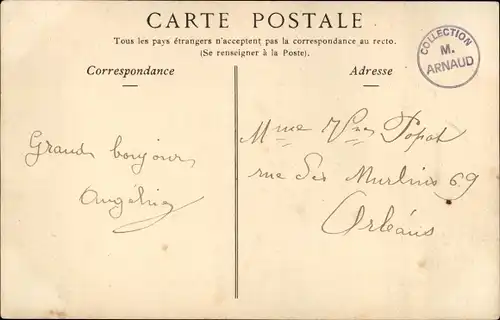 CARTE POSTALE
Tous les pays étrangers n'acceptent pas la correspondance au recto.
(Se renseigner à la Poste).
Correspondance
Adresse
COLLECTION
M.
ARNAUD
Grand bonjour
Angélina
Mme Vve Popot
rue des Murlins 69
Orléans